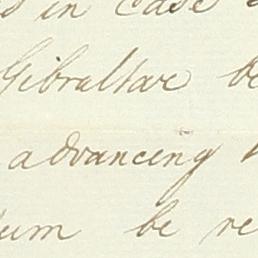 in case
Gibraltar be
advancing
um be re